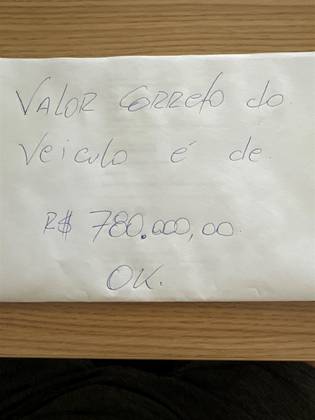 VALOR CORREto do
Veiculo é de
R$ 780.000,00.
OK.